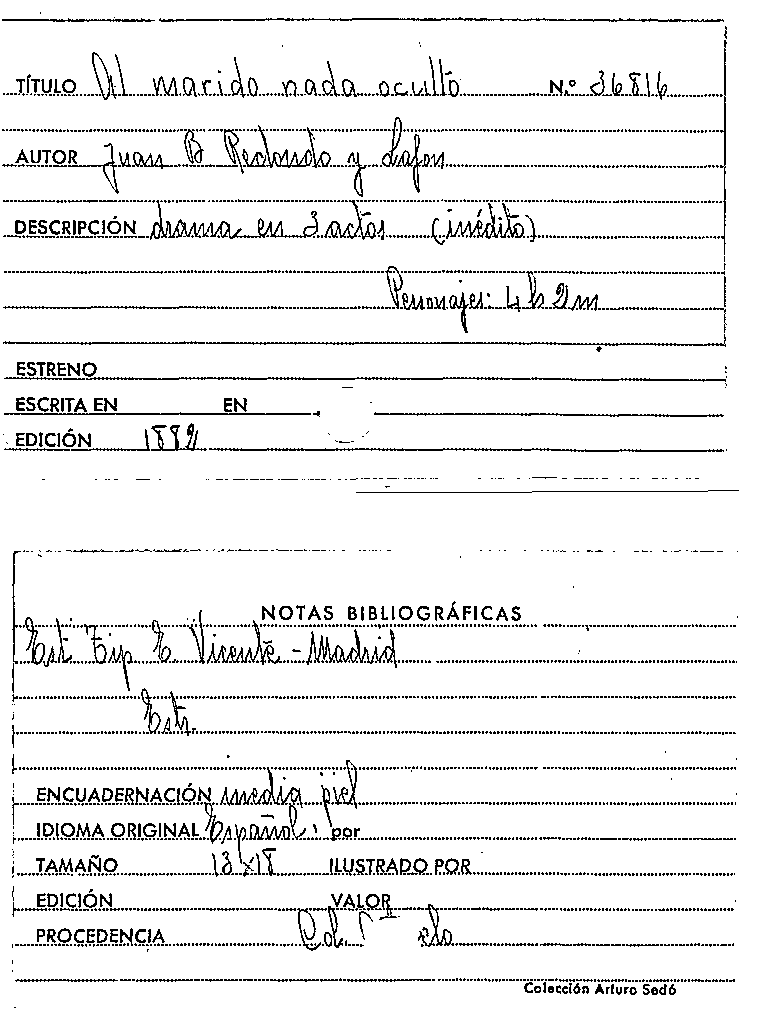 TÍTULO Al marido nada oculto N.º 36816
AUTOR Juan B Redondo y Lafon
DESCRIPCIÓN drama en 3 actos (inédito)
Personajes: 4 h 2 m
ESTRENO
ESCRITA EN EN
EDICIÓN 1882
NOTAS BIBLIOGRÁFICAS
Est Tip E. Vicente - Madrid
Estr.
ENCUADERNACIÓN media piel
IDIOMA ORIGINAL Español, por
TAMAÑO 13x18 ILUSTRADO POR
EDICIÓN VALOR
PROCEDENCIA Col.
Colección Arturo Sedó